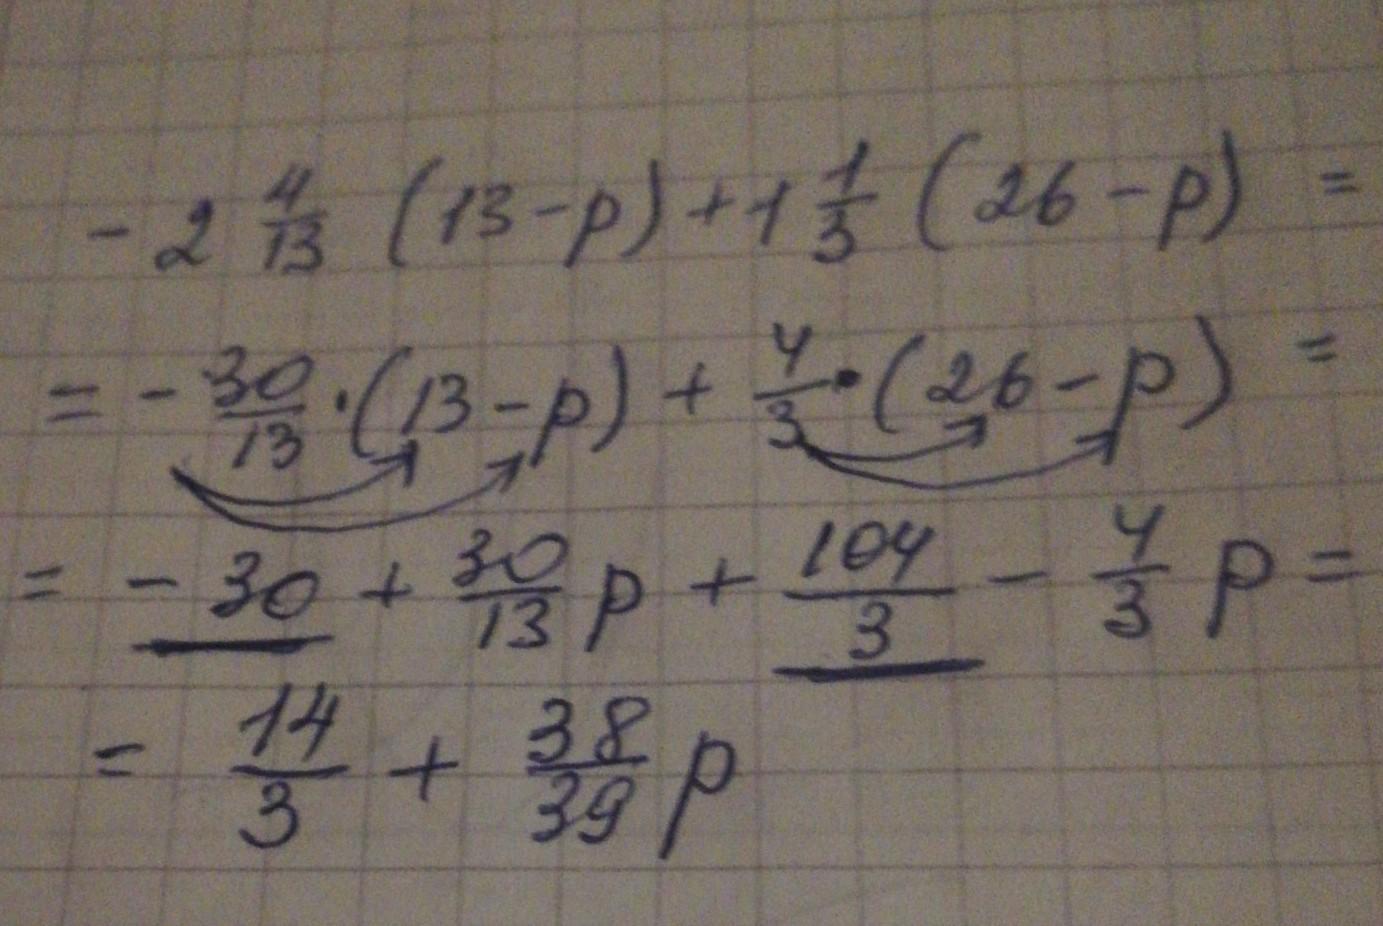 - 2 4/13 (13 - p) + 1 1/3 (26 - p) =
= - 30/13 · (13 - p) + 4/3 · (26 - p) =
= - 30 + 30/13 p + 104/3 - 4/3 p =
= 14/3 + 38/39 p